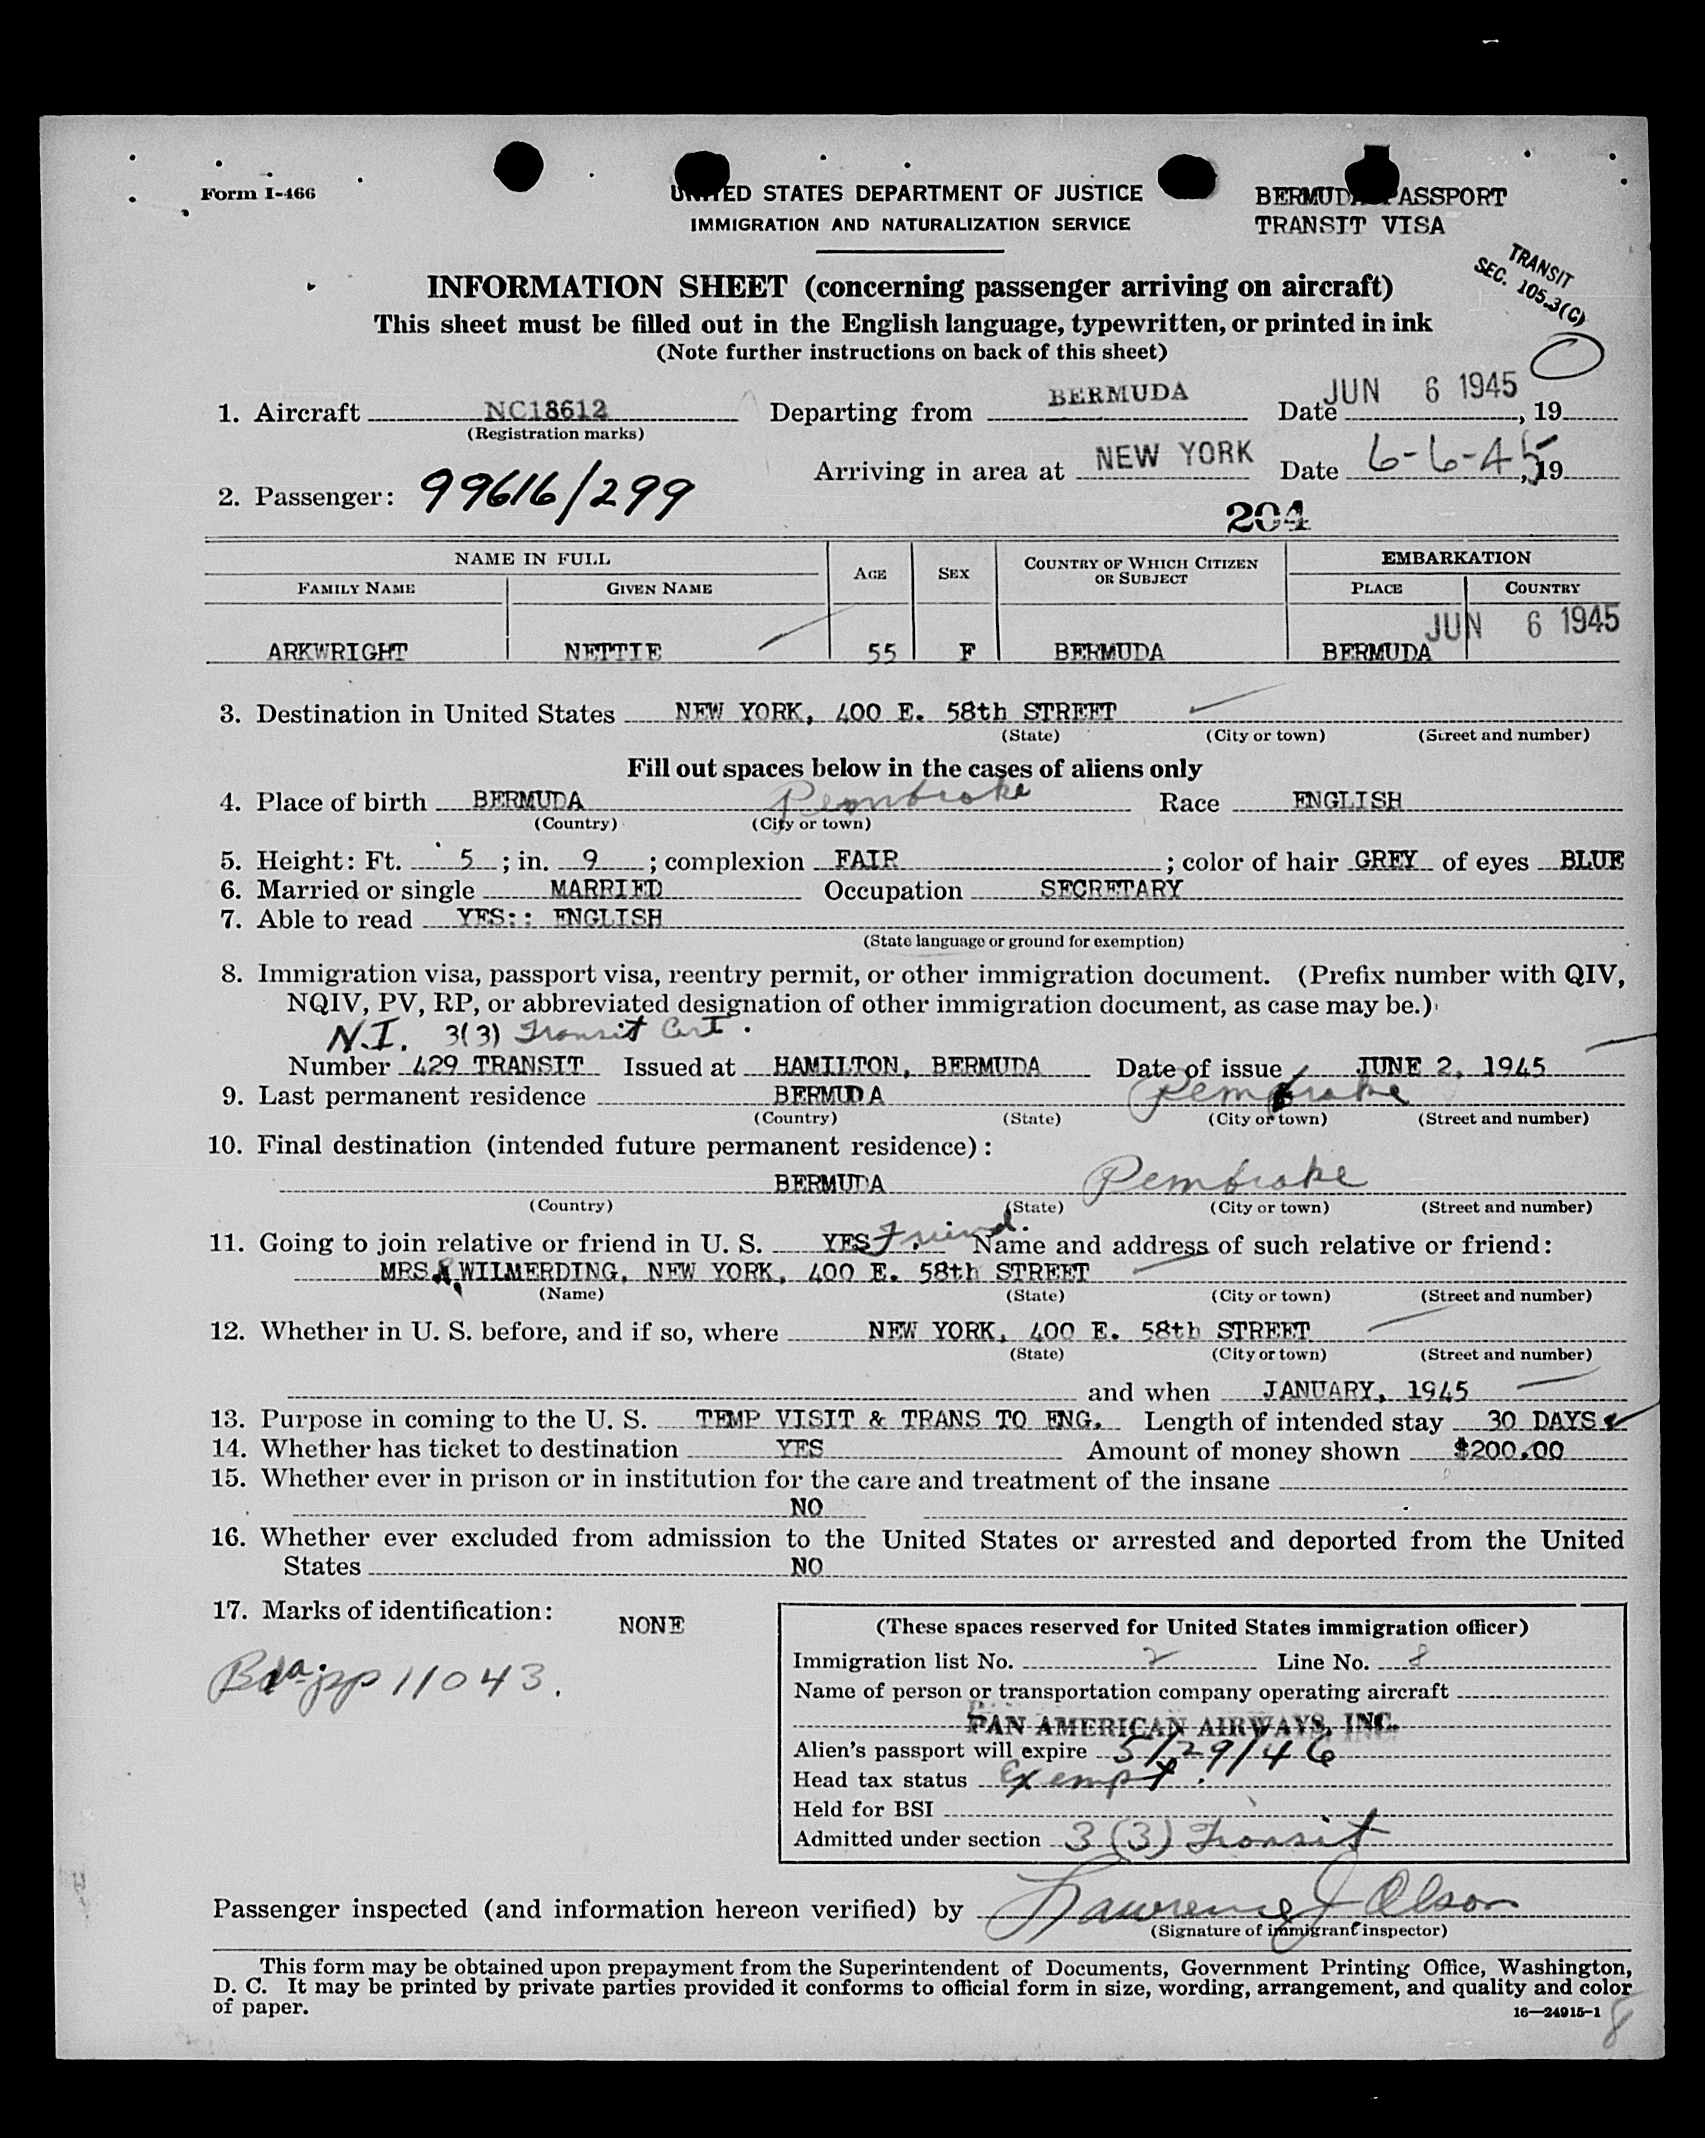 Form I-466
UNITED STATES DEPARTMENT OF JUSTICE
IMMIGRATION AND NATURALIZATION SERVICE
BERMUDA PASSPORT
TRANSIT VISA
TRANSIT
SEC. 105.3(C)
INFORMATION SHEET (concerning passenger arriving on aircraft)
This sheet must be filled out in the English language, typewritten, or printed in ink
(Note further instructions on back of this sheet)
1. Aircraft NC18612 Departing from BERMUDA Date JUN 6 1945, 19
(Registration marks)
Arriving in area at NEW YORK Date 6-6-45, 19
2. Passenger: 99616/299
204
NAME IN FULL AGE SEX COUNTRY OF WHICH CITIZEN OR SUBJECT EMBARKATION
FAMILY NAME GIVEN NAME PLACE COUNTRY
JUN 6 1945
ARKWRIGHT NETTIE 55 F BERMUDA BERMUDA
3. Destination in United States NEW YORK, 400 E. 58th STREET
(State) (City or town) (Street and number)
Fill out spaces below in the cases of aliens only
4. Place of birth BERMUDA Pembroke Race ENGLISH
(Country) (City or town)
5. Height: Ft. 5; in. 9; complexion FAIR; color of hair GREY of eyes BLUE
6. Married or single MARRIED Occupation SECRETARY
7. Able to read YES:: ENGLISH
(State language or ground for exemption)
8. Immigration visa, passport visa, reentry permit, or other immigration document. (Prefix number with QIV,
NQIV, PV, RP, or abbreviated designation of other immigration document, as case may be.)
N.I. 3(3) Transit Cert.
Number 429 TRANSIT Issued at HAMILTON, BERMUDA Date of issue JUNE 2, 1945
9. Last permanent residence BERMUDA Pembroke
(Country) (State) (City or town) (Street and number)
10. Final destination (intended future permanent residence):
BERMUDA Pembroke
(Country) (State) (City or town) (Street and number)
11. Going to join relative or friend in U. S. YES Friend. Name and address of such relative or friend:
MRS. WILMERDING, NEW YORK, 400 E. 58th STREET
(Name) (State) (City or town) (Street and number)
12. Whether in U. S. before, and if so, where NEW YORK, 400 E. 58th STREET
(State) (City or town) (Street and number)
and when JANUARY, 1945
13. Purpose in coming to the U. S. TEMP VISIT & TRANS TO ENG. Length of intended stay 30 DAYS
14. Whether has ticket to destination YES Amount of money shown $200.00
15. Whether ever in prison or in institution for the care and treatment of the insane
NO
16. Whether ever excluded from admission to the United States or arrested and deported from the United
States NO
17. Marks of identification: NONE
Bda. pp 11043.
(These spaces reserved for United States immigration officer)
Immigration list No. 2 Line No. 8
Name of person or transportation company operating aircraft
PAN AMERICAN AIRWAYS, INC.
Alien's passport will expire 5/29/46
Head tax status Exempt.
Held for BSI
Admitted under section 3(3) Transit
Passenger inspected (and information hereon verified) by Lawrence J Olson
(Signature of immigrant inspector)
This form may be obtained upon prepayment from the Superintendent of Documents, Government Printing Office, Washington,
D. C. It may be printed by private parties provided it conforms to official form in size, wording, arrangement, and quality and color
of paper.
16—24915-1
8